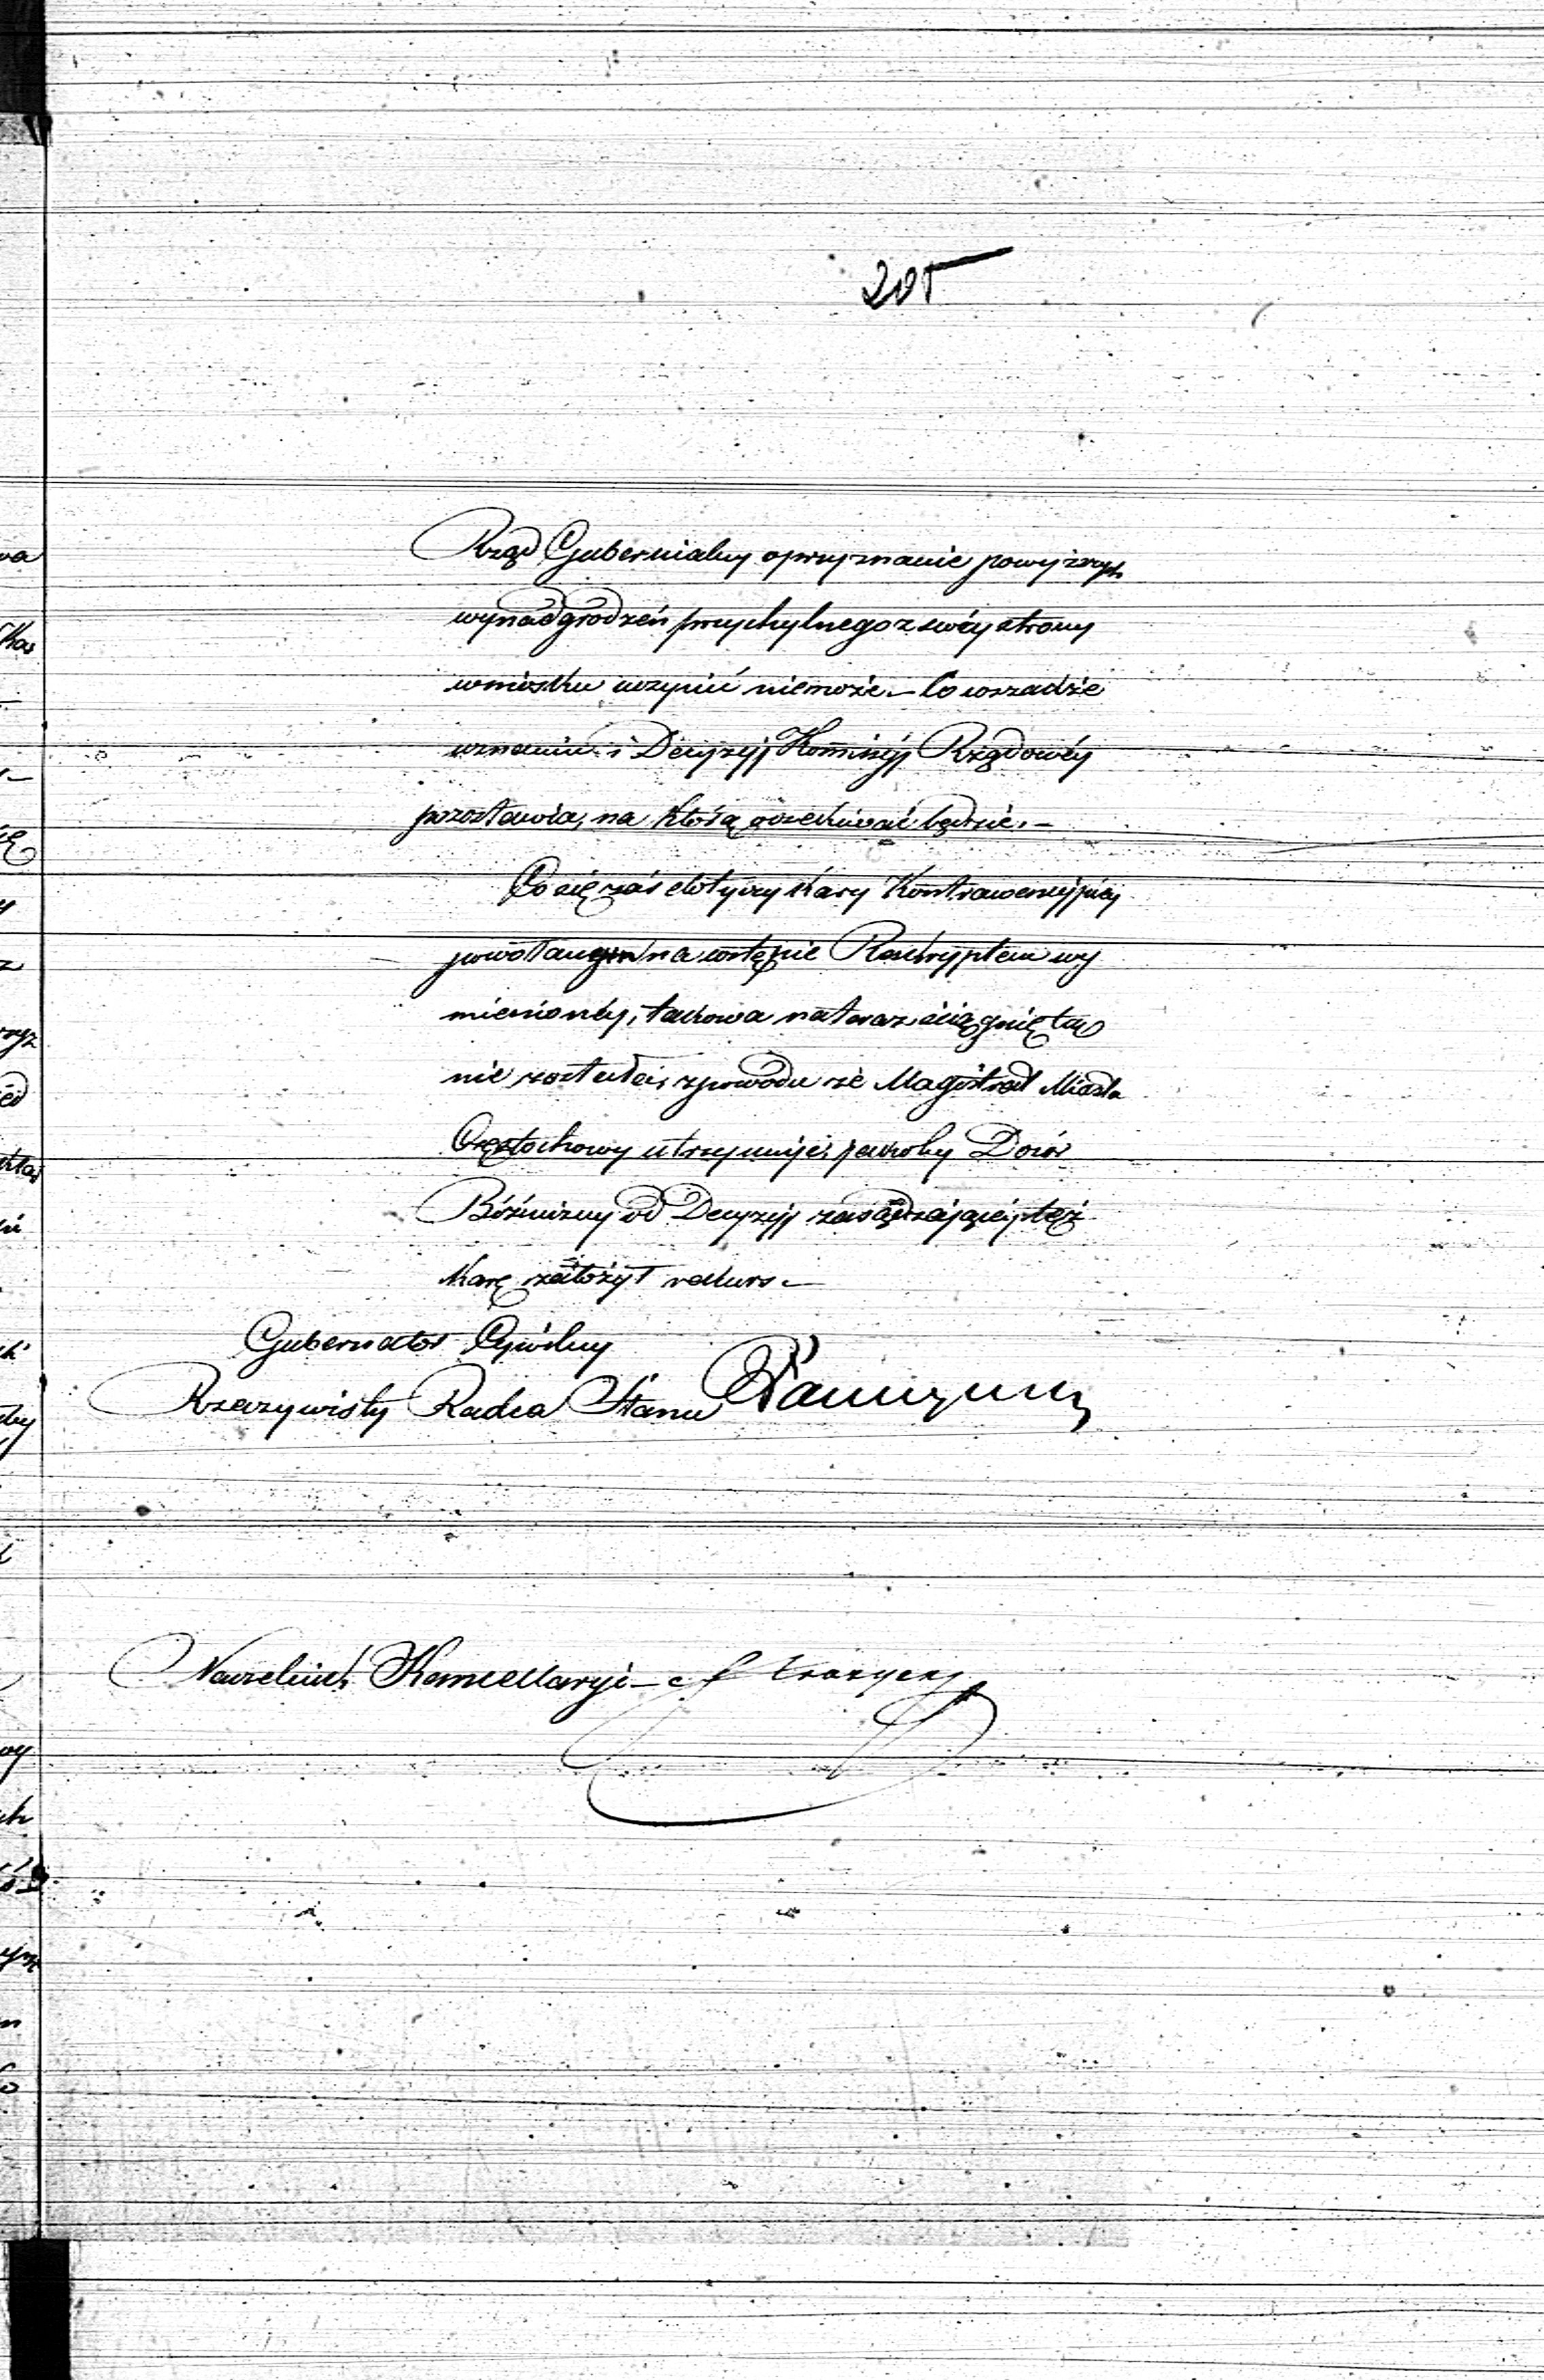 205
Rząd Gubernialny o przyznanie powyższych
wynadgrodzeń przychylnego z swéy strony
wniosku uczynić niemoże. – Co wszakże
uznaniu i Decyzyj Kommissyj Rządowéy
pozostawia, na którą oczekiwać będzie. –
Co się zaś dotyczy kary Kontrawencyjnéy
powołanym na wstępie Reskryptem wy
mienionéy, takowa natoraz ściągniętą
nie została, z powodu że Magistrat Miasta
Częstochowy utrzymuje, jakoby Dozór
Bóźniczny od Decyzyj zasądzającéy też
karę założył rekurs. –
Gubernator Cywilny
Rzeczywisty Radca Stanu
Naczelnik Kancellaryi